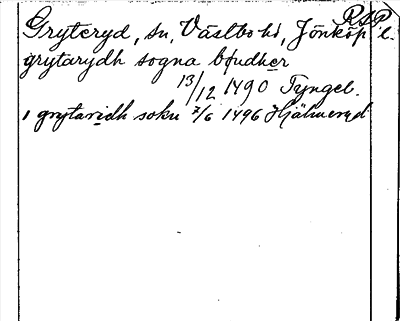 RAP
Gryteryd, sn, Västbo hd, Jönköp. l.
grytarydh sogna boudher
13/12 1490 Tyngel.
i grytaridh sokn 7/6 1496 Hjälmeryd